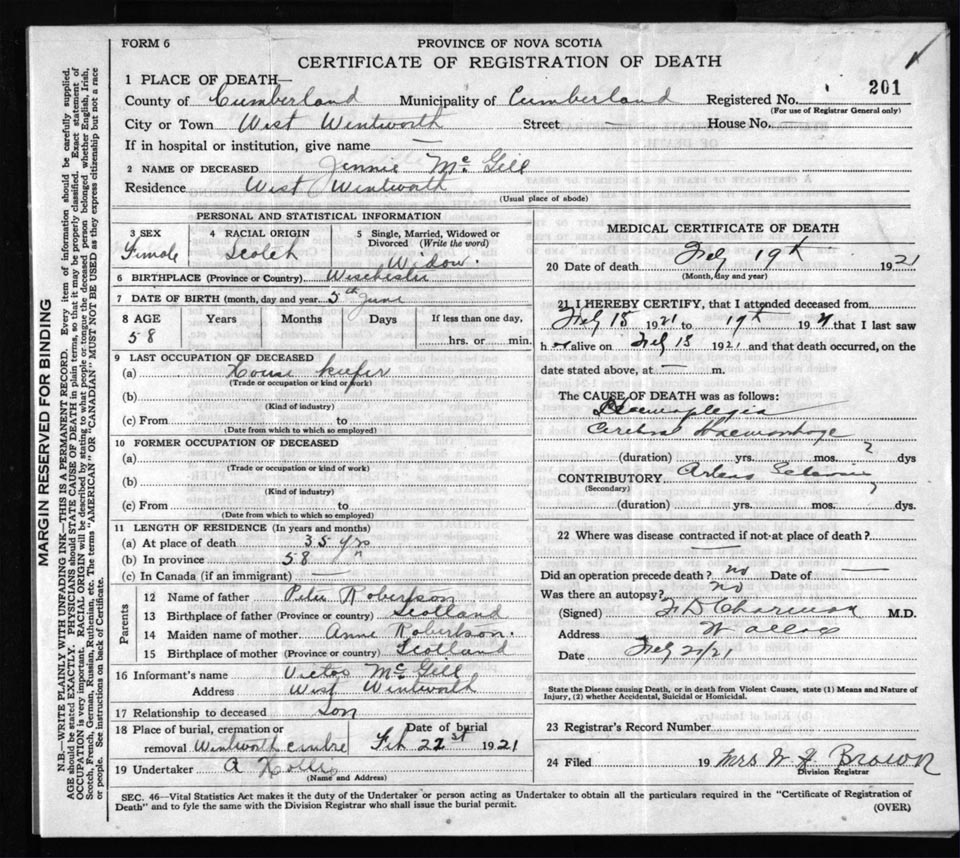 FORM 6
PROVINCE OF NOVA SCOTIA
CERTIFICATE OF REGISTRATION OF DEATH
1 PLACE OF DEATH—
County of Cumberland Municipality of Cumberland Registered No. 201
(For use of Registrar General only)
City or Town West Wentworth Street — House No.
If in hospital or institution, give name —
2 NAME OF DECEASED Jennie Mc Gill
Residence West Wentworth
(Usual place of abode)
PERSONAL AND STATISTICAL INFORMATION
3 SEX Female
4 RACIAL ORIGIN Scotch
5 Single, Married, Widowed or Divorced (Write the word) Widow.
6 BIRTHPLACE (Province or Country)
7 DATE OF BIRTH (month, day and year) 5th June
8 AGE Years Months Days If less than one day,
58 hrs. or min.
9 LAST OCCUPATION OF DECEASED
(a) House keefer
(Trade or occupation or kind of work)
(b)
(Kind of industry)
(c) From to
(Date from which to which so employed)
10 FORMER OCCUPATION OF DECEASED
(a)
(Trade or occupation or kind of work)
(b)
(Kind of industry)
(c) From to
(Date from which to which so employed)
11 LENGTH OF RESIDENCE (In years and months)
(a) At place of death 35 yrs
(b) In province 58 "
(c) In Canada (if an immigrant) —
Parents
12 Name of father Peter Robertson
13 Birthplace of father (Province or country) Scotland
14 Maiden name of mother Anne Robertson.
15 Birthplace of mother (Province or country) Scotland
16 Informant's name Victor Mc Gill
Address West Wentworth
17 Relationship to deceased Son
18 Place of burial, cremation or removal Wentworth Date of burial Feb 22st 1921
19 Undertaker A
(Name and Address)
MEDICAL CERTIFICATE OF DEATH
20 Date of death Feby 19th 1921
(Month, day and year)
21 I HEREBY CERTIFY, that I attended deceased from
Feby 18 1921 to 19th 19 21 that I last saw
h alive on Feby 18 1921 and that death occurred, on the
date stated above, at — m.
The CAUSE OF DEATH was as follows:
Haemaplegia
Cerebral Haemorrhage
(duration) yrs. mos. ? dys
CONTRIBUTORY
(Secondary) ?
(duration) yrs. mos. dys.
22 Where was disease contracted if not at place of death?
—
Did an operation precede death? no Date of —
Was there an autopsy? no
(Signed) M.D.
Address Wallace
Date Feby 21/21
State the Disease causing Death, or in death from Violent Causes, state (1) Means and Nature of Injury, (2) whether Accidental, Suicidal or Homicidal.
23 Registrar's Record Number
24 Filed 19 Mrs W H Brown
Division Registrar
SEC. 46—Vital Statistics Act makes it the duty of the Undertaker or person acting as Undertaker to obtain all the particulars required in the "Certificate of Registration of
Death" and to fyle the same with the Division Registrar who shall issue the burial permit.
(OVER)
MARGIN RESERVED FOR BINDING
N.B.—WRITE PLAINLY WITH UNFADING INK—THIS IS A PERMANENT RECORD. Every item of information should be carefully supplied.
AGE should be stated EXACTLY. PHYSICIANS should STATE CAUSE OF DEATH in plain terms, so that it may be properly classified. Exact statement of
OCCUPATION is very important. RACIAL ORIGIN will be described by stating to what people or tongue the deceased person belonged whether English, Irish,
Scotch, French, German, Russian, Ruthenian, etc. The terms "AMERICAN" OR "CANADIAN" MUST NOT BE USED as they express citizenship but not a race
or people. See instructions on back of Certificate.